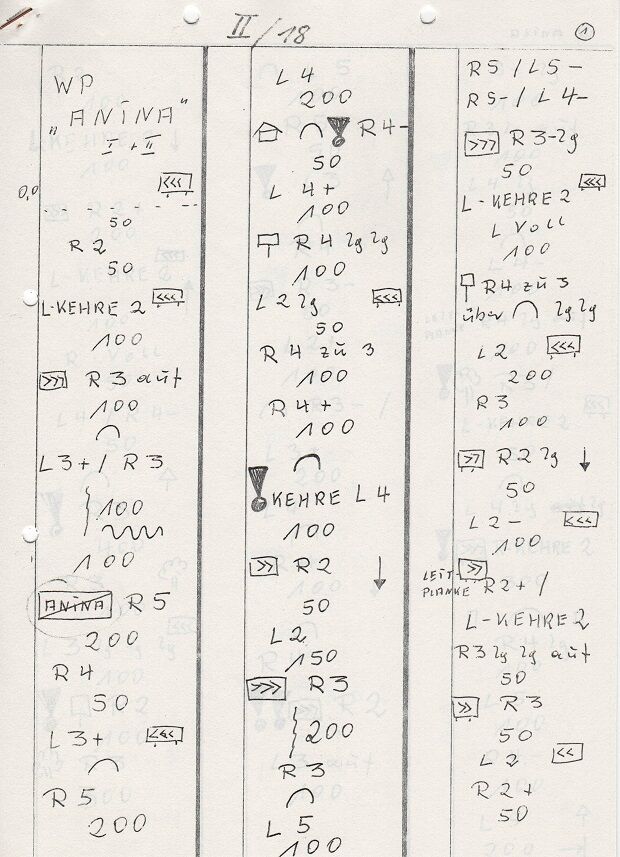 II/18
1
WP
"ANINA"
I + II
0,0
<<<
50
R 2
50
L-KEHRE 2 <<<
100
>>> R 3 auf
100
L3+/ R3
100
100
ANINA R5
200
R4
50
L3+ <<<
R5
200
L4
200
! R4-
50
L 4+
100
R 4 lg lg
100
L2 lg <<<
50
R 4 zu 3
100
R 4+
100
! KEHRE L4
100
>> R2 ↓
50
L2
150
>>> R3
200
R3
L 5
100
R5/L5-
R5-/L4-
>>> R3-lg
50
L-KEHRE 2 <<<
L Voll
100
R4 zu 3
über lg lg
L2 <<<
200
R3
100
>> R2 lg ↓
50
L2- <<<
100
LEIT-
PLANKE >> R2+/
L-KEHRE2
R3 lg lg auf
50
>> R3
50
L2 <<
R2+
50